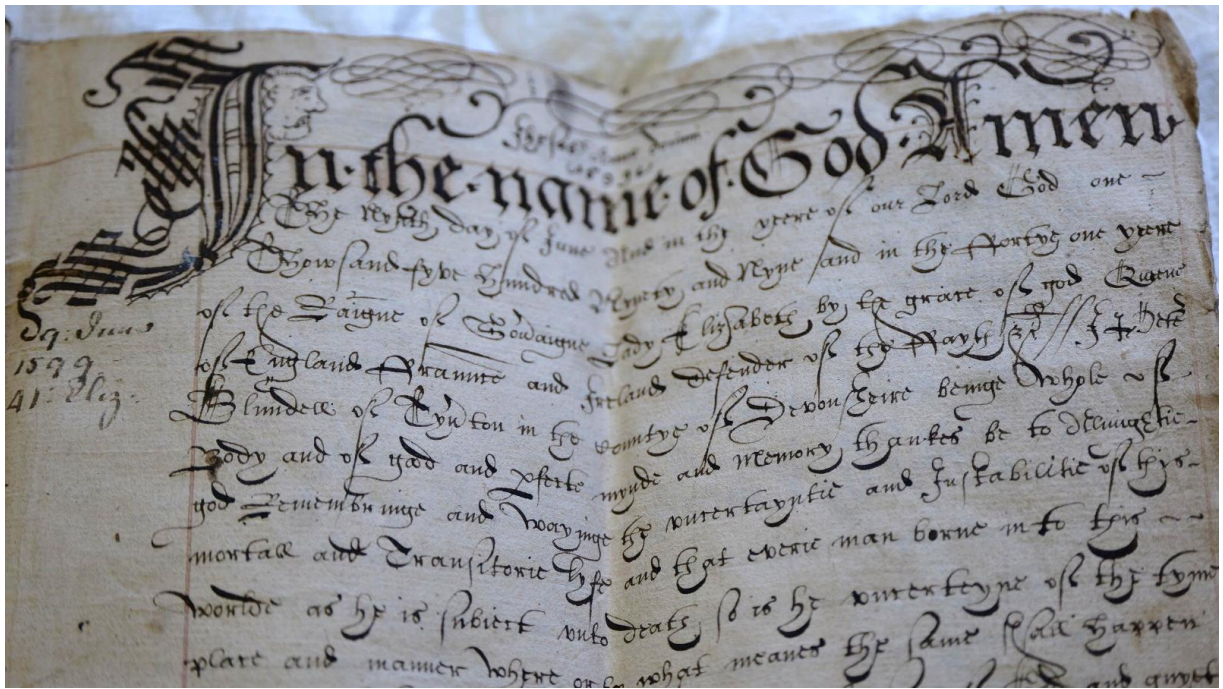 In·the·name·of·God·Amen
The Nynth day of June And in the yeere of our Lord God one
Thowsand fyve Hundred Nynety and Nyne and in the ffortye one yeere
of the Raigne of Lady Elizabeth by the grace of god Queene
of England ffraunce and Ireland defender of the ffayth &c // I Peter
Blundell of Tyv'ton in the countye of Devonsheire beinge whole of
Body and of good and pfecte mynde and memory thankes be to
god Remembringe and Wayinge the vncertayntie and Instabilitie of this
mortall and Transitorie lyfe and that everie man borne into this
worlde as he is subiect vnto death so is he vncerteyne of the tyme
place and manner where or by what meanes the same shall happen
and quyet
1599
41. Eliz.